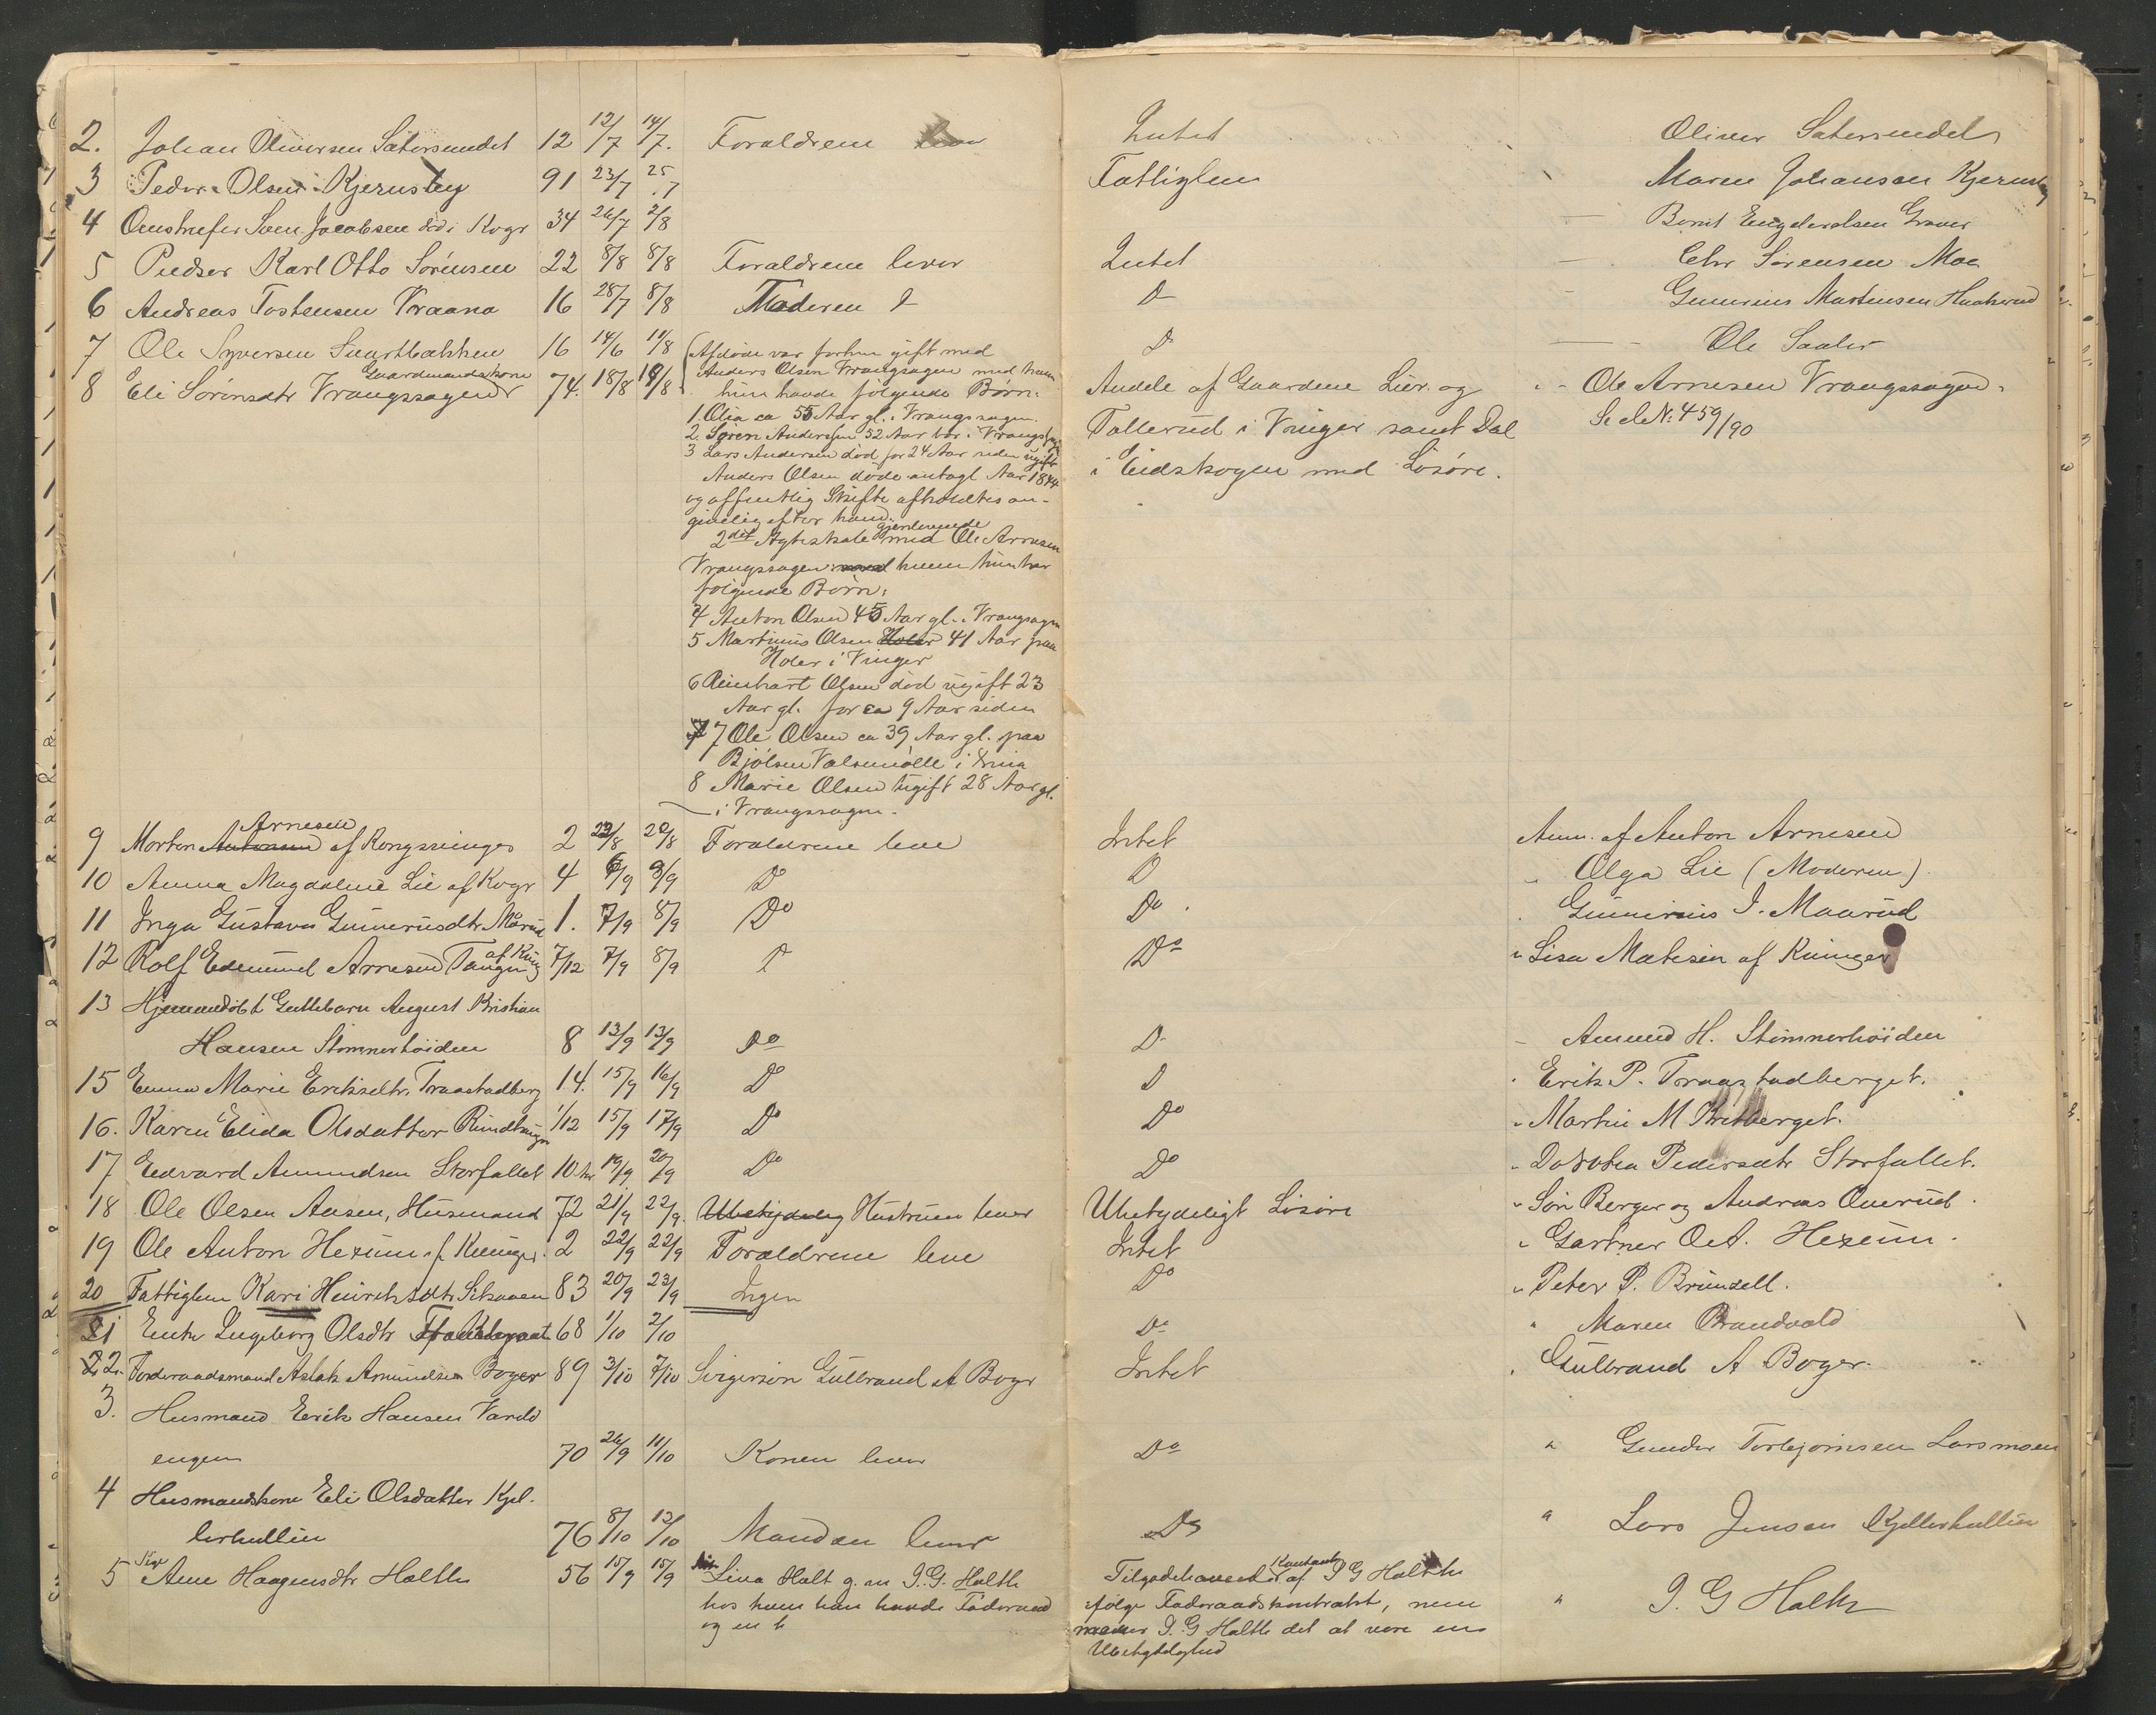 2. Johan Oliversen Sätersmdet 12 12/7 14/7. Foraldrene Intet Oliver Satersmdet
3 Peder Olsen Kjernsby 91 23/7 25/7 Fattiglem Maren Johansen Kjernsby
4 Jacobsen död i Kvgr 34 26/7 2/8 — Bernt Graver
5 Pudser Karl Otto Sörensen 22 8/8 8/8 Foraldrene lever Intet — Chr Sörensen Moe
6 Andreas Tostensen Vraana 16 28/7 8/8 Moderen D Gunerius Martinsen
7 Ole Syversen Svartbækken 16 14/6 11/8 D — Ole Saaler
8 Eli Sörensdtr Gaardmandskone Vrangssagen 74. 18/8 19/8 Andele af Gaardene Lier og Ole Arnesen Vrangssagen
Afdöde var forhen gift med
Anders Olsen Vrangsagen med ham
hun havde fölgende Börn:
1. Olia ca 55 Aar gl. i Vrangssagen
2. Sören Andersen 52 Aar bor i Vrangs
3 Lars Andersen död for 24 Aar siden ugift
Anders Olsen döde antagl Aar 1844
og offentlig Skifte afholdtes an-
givelig efter ham.
2det Ægteskab gjenlevende med Ole Arnesen
Vrangssagen hvem hun har
fölgende Börn:
4 Anton Olsen 45 Aar gl. i Vrangsagen
5 Martinus Olsen Holer 41 Aar paa
Holer i Vinger
6 Reinhart Olsen död ugift 23
Aar gl. for ca 9 Aar siden
7 Ole Olsen ca 39 Aar gl. paa
Bjölsen Valsemölle i Xnia
8 Marie Olsen ugift 28 Aar gl.
i Vrangssagen.
Tallerud i Vinger samt Dal
i Eidskogen med Lösöre.
Se No: 459/90
9 Morten Antonsen Arnesen af Kongsvinger 2 22/8 Foraldrene leve Intet Anm. af Anton Arnesen
10 Anna Magdalene Lie af Kvgr 4 6/9 8/9 Do D " Olga Lie (Moderen).
11 Inga Gustava Gunerusdtr Mårud 1. 7/9 8/9 Do Do. Gunerius J. Maarud
12 Rolf Arnesen Tangen af Kving 7/12 7/9 8/9 D Do " Lisa Matisen af Kvinger
13 Hjemmedöbt Guttebarn August Kristian
Hansen Stömnerhöiden 8 13/9 13/9 Do D — Amund H. Stömnerhöiden
15 Emma Marie Eriksdtr. Traastadberg 14. 15/9 16/9 Do D Erik P. Traastadberget.
16. Karen Elida Olsdatter 1/12 15/9 17/9 Do Do " Martin M
17 Edvard Amundsen Storfallet 10. 19/9 20/9 Do Do " Dorthea Pedersdtr Storfallet.
18 Ole Olsen Aasen, Husmand 72 21/9 22/9. Ubetydelig Hustruen lever Ubetydeligt Lösöre " Sön Berger og Andreas
19 Ole Anton Hexum af Kvinger. 2 22/9 22/9 Foraldrene leve Intet " Gartner O. A. Hexum.
20 Fattiglem Kari Heinriksdtr 83 20/9 23/9 Ingen Do " Peter P. Brundell.
21 Enke Ingeborg Olsdtr 68 1/10 2/10 Do " Maren Brandvold
22. Foderaadsmand Aslak Amundsen Boger 89 3/10 7/10 Svigersön Gulbrand A Boger Intet Gulbrand A Boger.
3. Husmand Erik Hansen Vardd
engen 70 26/9 11/10 Konen lever Do " Gunder Torbjörnsen Larsmoen
4 Husmandskone Eli Olsdatter Kjel-
lerhullin 76 8/10 13/10 Manden lever Do " Lars Jensen Kjellerhullin
5 Pige Ane Haagensdtr Holth 56 15/9 15/9 Lina Holt g. m J. G. Holth Tilgodehavende Kontant af J G Holth " J. G Holth
hos hvem han havde Foderaad
og en
ifölge Foderaadskontrakt, men
mener J. G Holth det at være en
Ubetydelighed